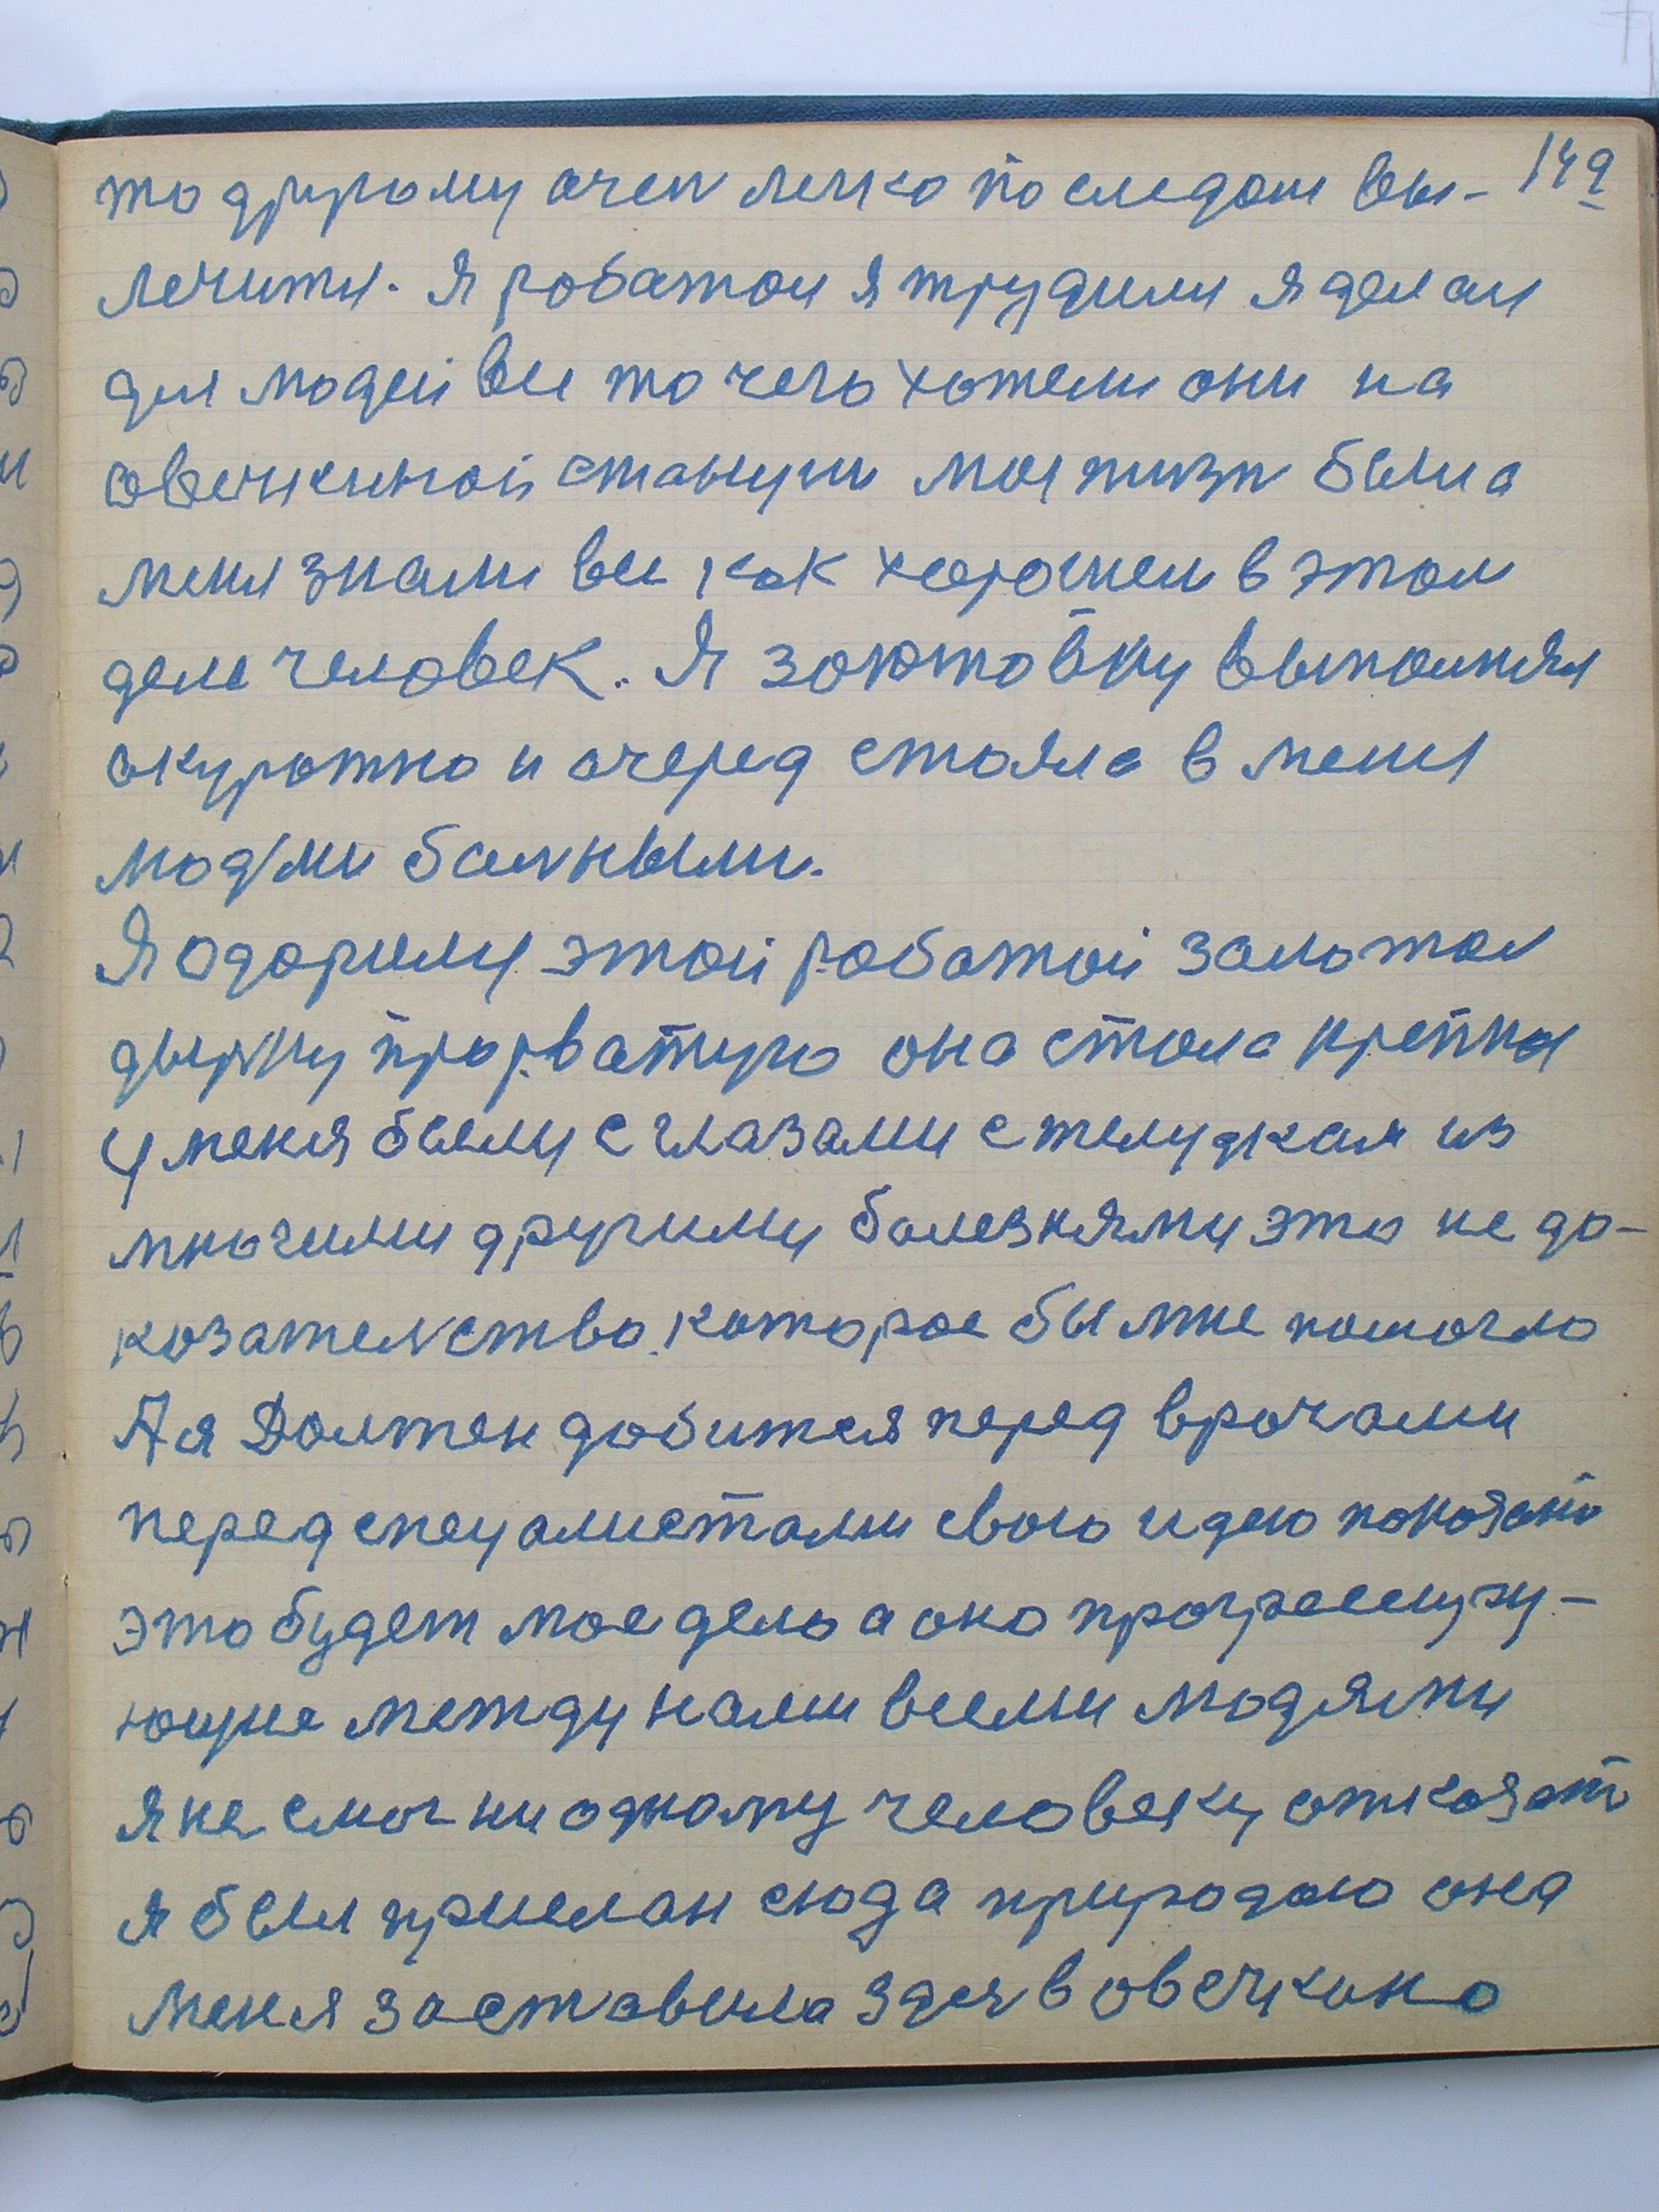 149
то другому очен легко по следам вы-
лечитя. Я роботал я трудился я делал
для людей все то чего хотели они на
овечкиной станции моя жизн была
меня знали все как хорошем в этом
деле человек. Я зоктовку выполнял
окуротно и очеред стояла в меня
людми болными.
Я одорился этой роботой золотом
дырку прорватую она стала крепкоя
У меня были с глазами с желудкам из
многими другими болезнями это не до-
козателство которое бы мне помогло
А я Должен добится перед врочами
перед спецалистами свою идею покозать
это будет мое дело а оно прогрессиру-
ющие между нами всеми людями
я не смог ни одному человеку откозать
я был прислан сюда природою она
меня заставила здес в овечкино